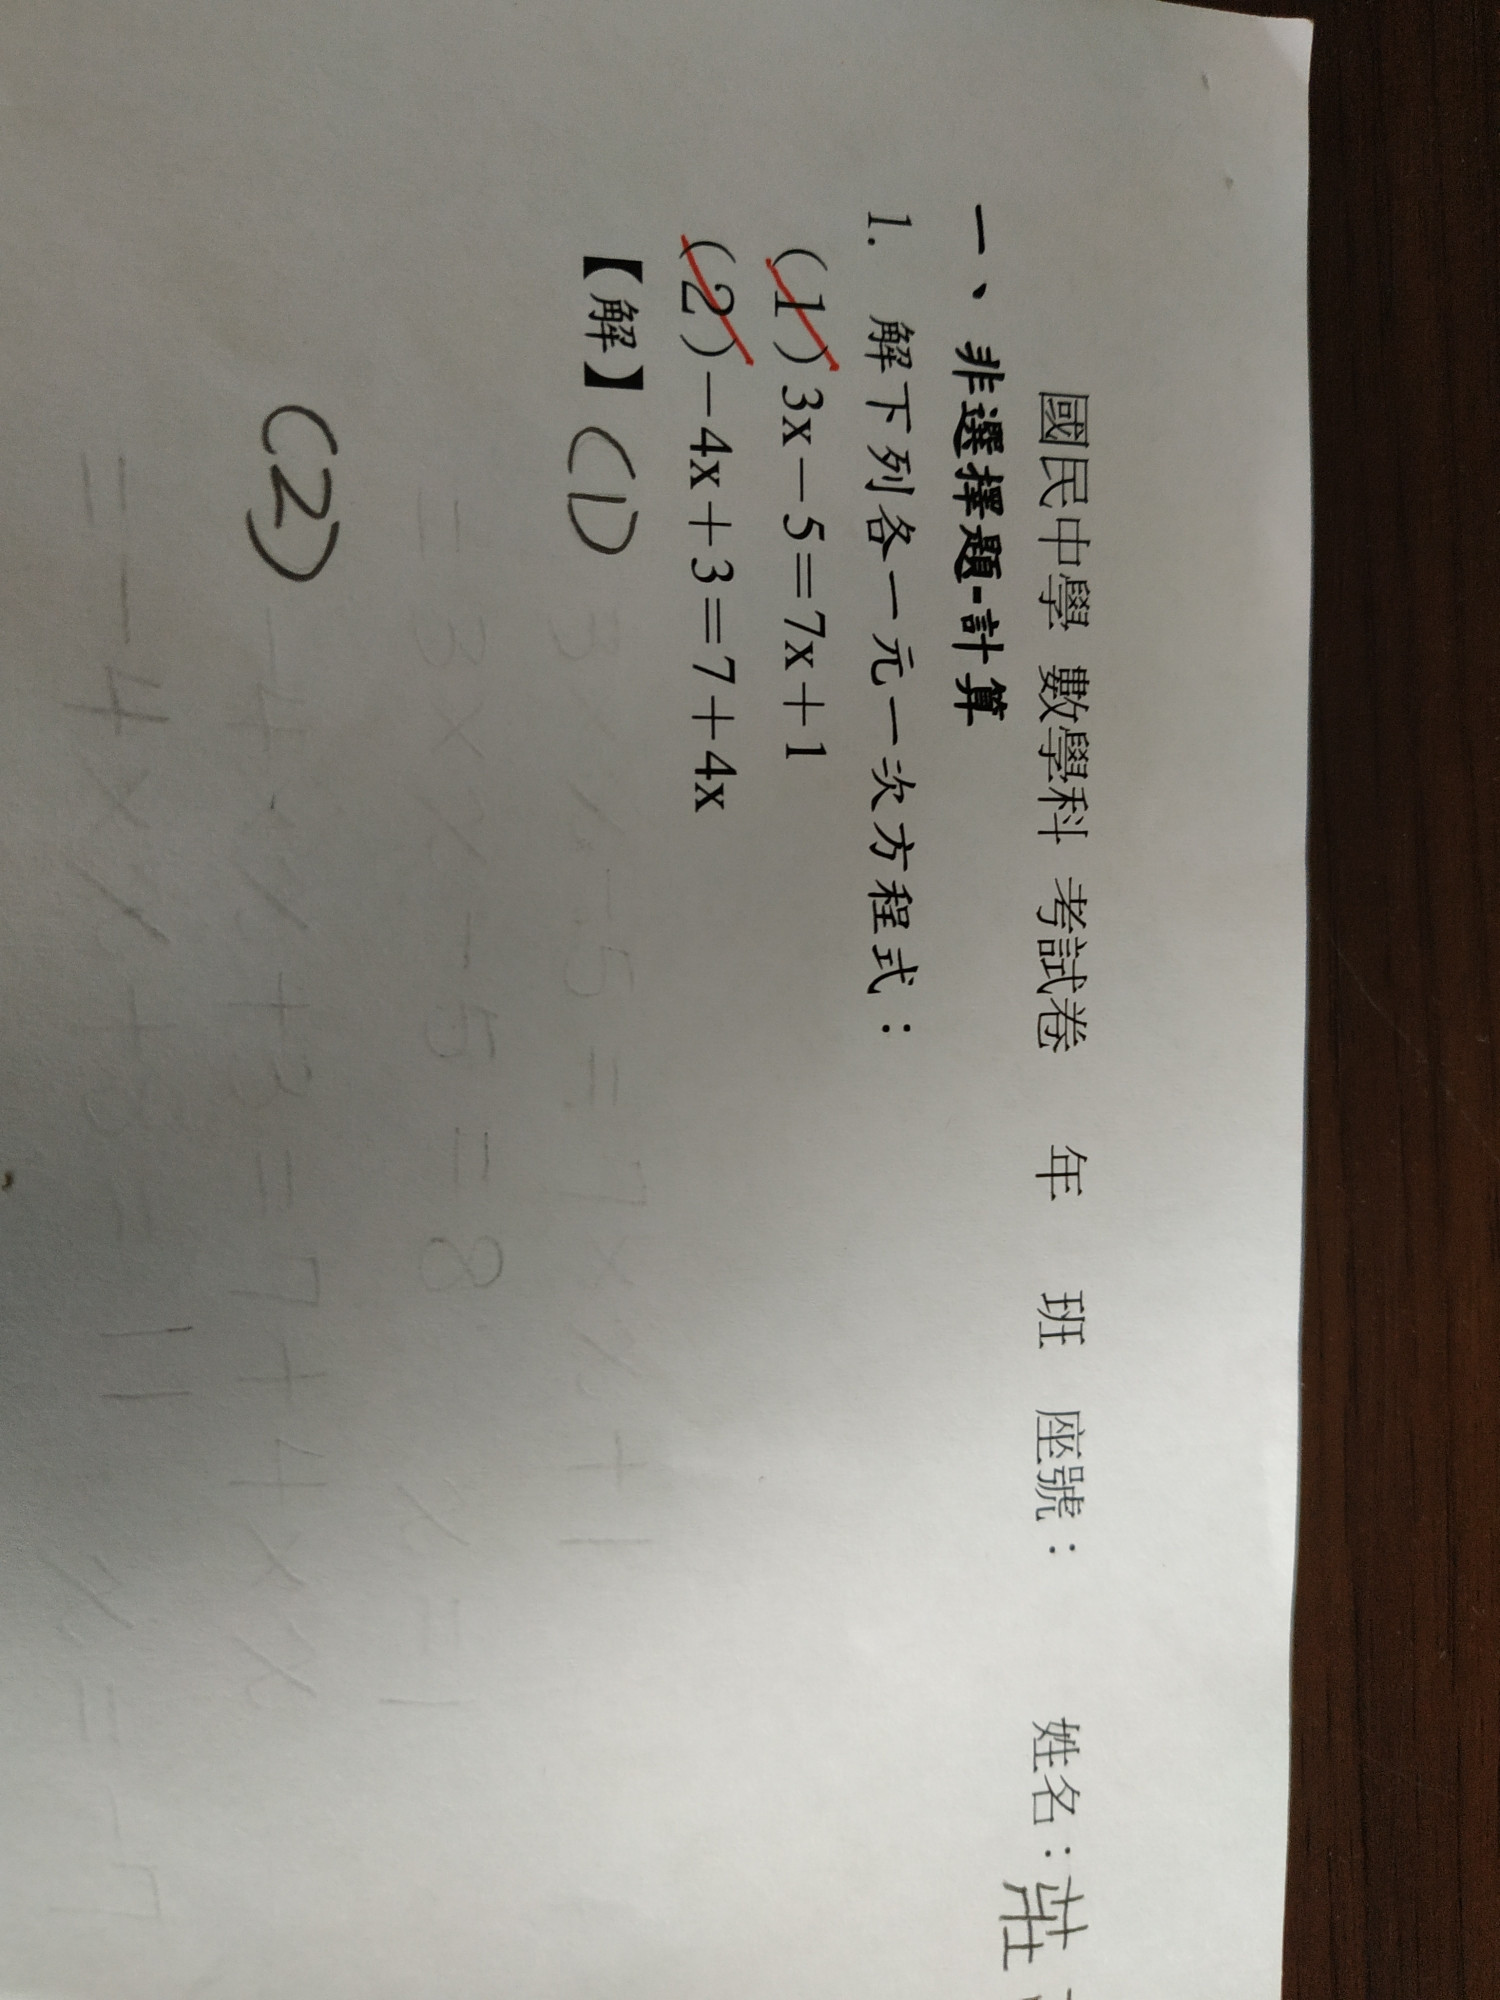 國民中學 數學科 考試卷 年 班 座號： 姓名：莊
一、非選擇題-計算
1. 解下列各一元一次方程式：
(1) 3x－5＝7x＋1
(2)－4x＋3＝7＋4x
【解】(1) 3x－5＝7x＋1
＝3x－5＝8 x＝1
(2) －4x＋3＝7＋4x
＝－4x＋3＝11 x＝－7